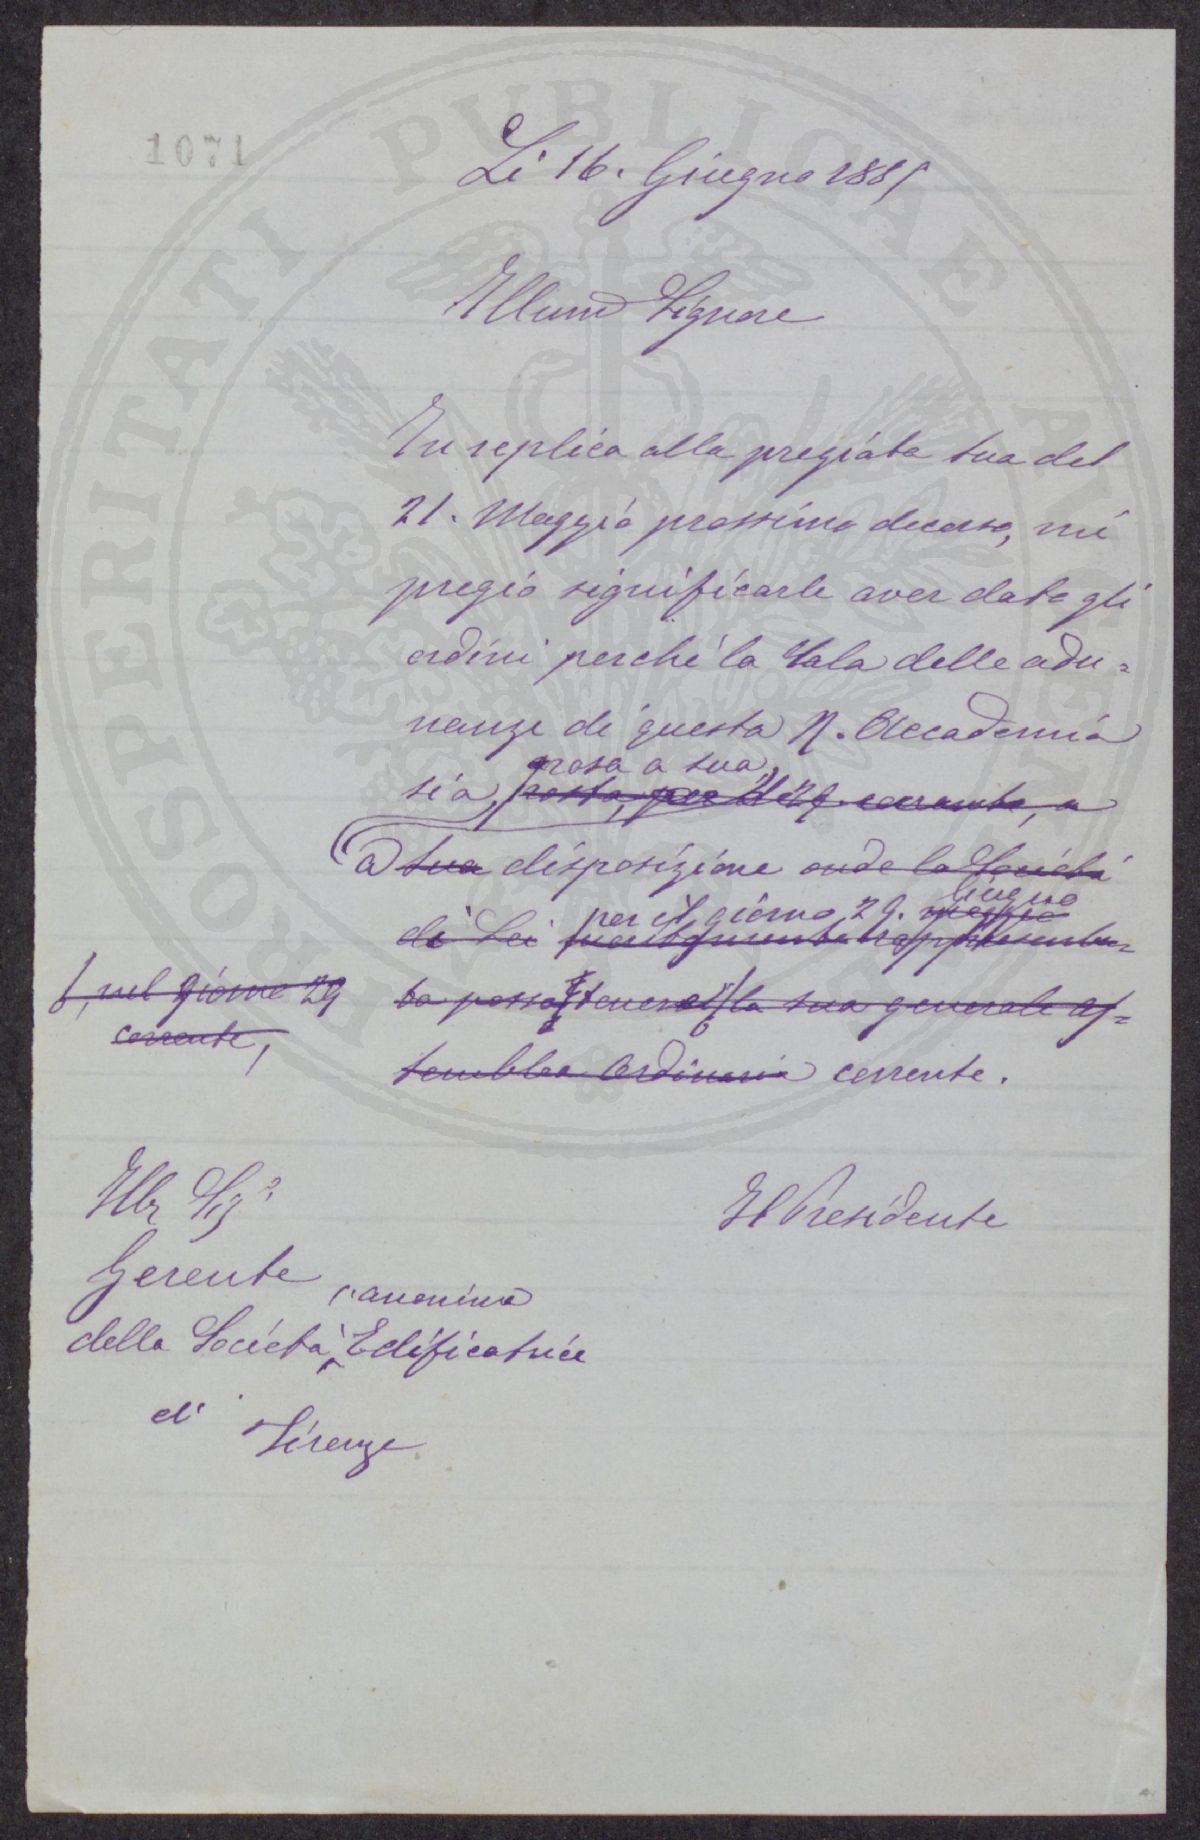 1071
Li 16. Giugno 1885
Illumo Signore
In replica alla pregiata sua del
21. Maggio prossimo decorso, mi
pregio significarle aver dato gli
ordini perché la Sala delle adu=
nanze di questa R. Accademia
posa a sua
sia, posta, per il 29. corrente, a
a sua disposizione onde la Società
per il giorno 29. maggio Giugno
di Lei rappresenta=
f, nel giorno 29
ta possa tenere la sua generale as=
corrente,
semblea Ordinaria corrente.
Il Presidente
Gerente
anonima
della Società Edificatrice
di
Firenze
PROSPERITATI PUBLICAE AUGENDAE